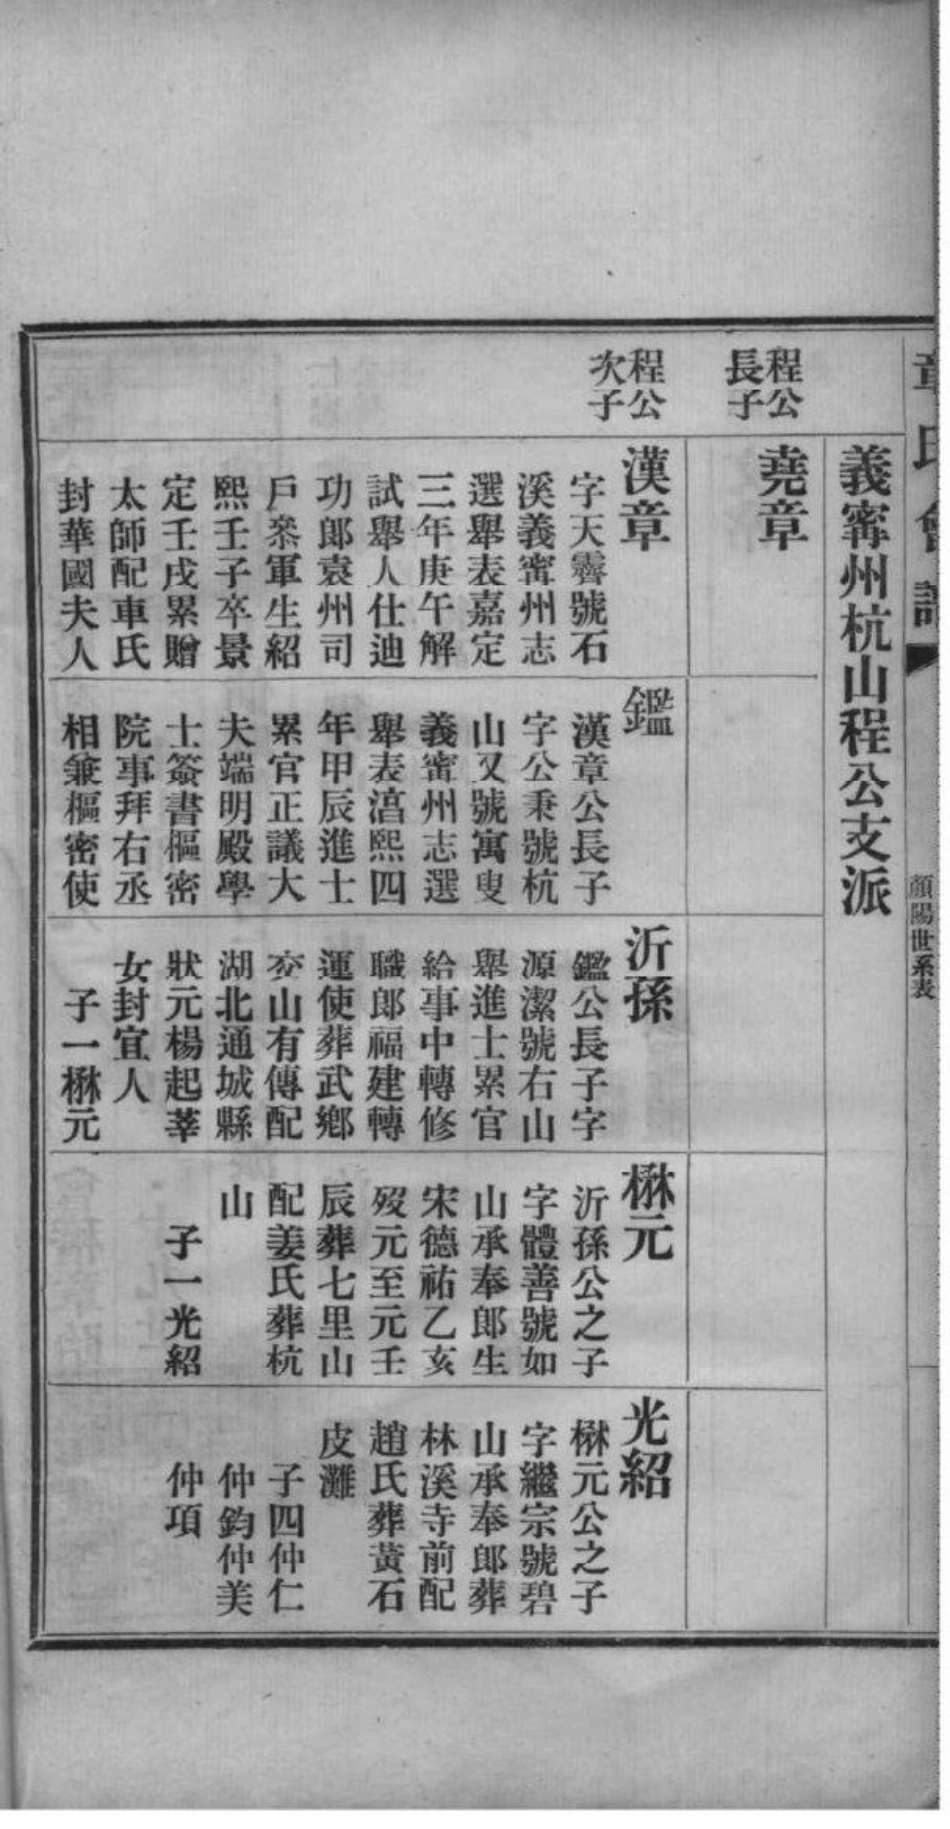 章氏會譜
顏陽世系表
義寧州杭山程公支派
程公
長子
堯章
程公
次子
漢章
字天霽號石
溪義寧州志
選舉表嘉定
三年庚午解
試舉人仕迪
功郎袁州司
戶叅軍生紹
熙壬子卒景
定壬戌累贈
太師配車氏
封華國夫人
鑑
漢章公長子
字公秉號杭
山又號寓叟
義寧州志選
舉表湻熙四
年甲辰進士
累官正議大
夫端明殿學
士簽書樞密
院事拜右丞
相兼樞密使
沂孫
鑑公長子字
源潔號右山
舉進士累官
給事中轉修
職郎福建轉
運使葬武鄉
夳山有傳配
湖北通城縣
狀元楊起莘
女封宜人
子一楙元
楙元
沂孫公之子
字體善號如
山承奉郎生
宋德祐乙亥
歿元至元壬
辰葬七里山
配姜氏葬杭
山
子一光紹
光紹
楙元公之子
字繼宗號碧
山承奉郎葬
林溪寺前配
趙氏葬黃石
皮灘
子四仲仁
仲鈞仲美
仲項